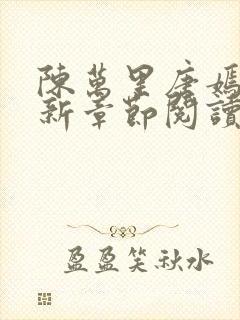 陳萬里唐嫣
新章節閱讀
盈盈笑秋水